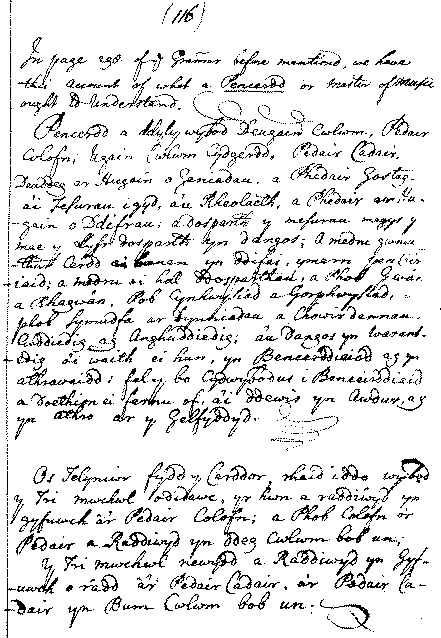 (116)
In page 298. of ye Grammer before mentiond, we have
this account of what a Pencerdd or master of Musick
ought to Understand.
Pencerdd a ddyly wybod Deugain Cwlwm, Pedair
Colofn; Ugain Cwlwm Cydgerdd, Pedair Cadair,
Deuddeg ar Hugain o Ganiadau, a Phedair Gosteg.
a'i Fesurau i gyd, a'u Rheolaeth, a Phedair ar Hu-
gain o Ddifrau; a dosparth y mesurau megys y
mae y Llyfr dosparth hyn yn dangos; A medru gwneu-
thur Cerdd ei hunan yn ddifai, ymarn
iaid; a medru ei holl ddosparthau, a Phob
a Rhagwan, Pob Cynhwysiad a Gorphwysiad,
phob Symudfa ar Symhiadau a Chwirdannau.
Cuddiedig ag Anghuddiedig; a'u Dangos yn warant-
edig o'i waith ei hun, yn Bencerddiaid ag yn
athrawaidd: fal y bo Cydwybodus i Bencerddiaid
a Doethion ei farnu ef; a'i ddewis yn Awdur, ag
yn athro ar y Gelfyddyd.
Os Telyniwr fydd y Cerddor, rhaid iddo wybod
y Tri mwchwl odidawc, yr hwn a raddiwyd yn
gyfuwch a'r Pedair Colofn; a Phob Colofn o'r
Pedair a Raddiwyd yn ddeg Cwlwm bob un;
y Tri mwchwl newydd a Raddiwyd yn Gyf-
uwch o radd a'r Pedair Cadair, a'r Pedair Ca-
dair yn Bum Cwlwm bob un: